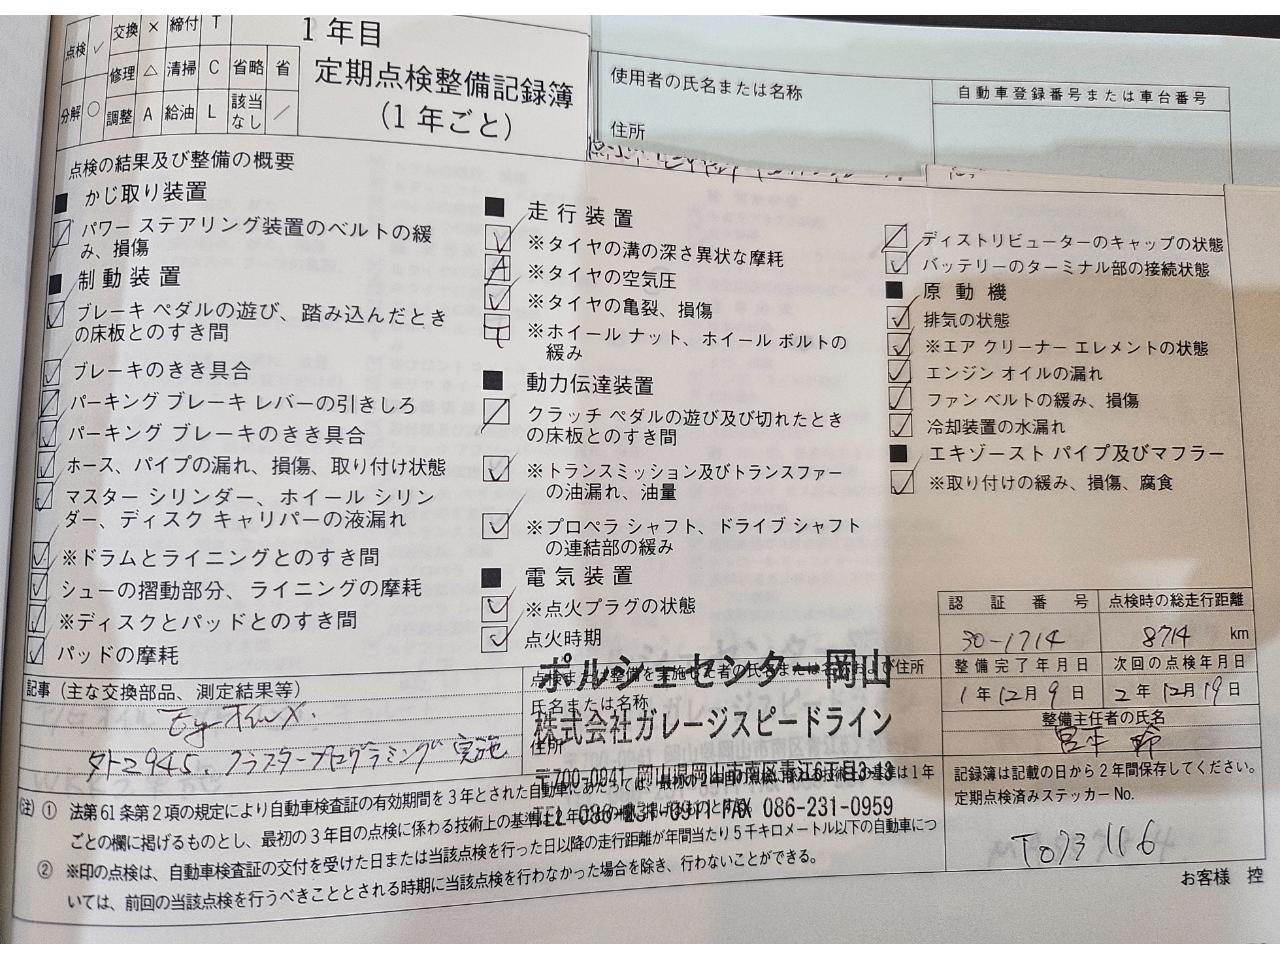 点検 ✓ 交換 × 締付 T
修理 △ 清掃 C 省略 省
分解 ○ 調整 A 給油 L 該当なし ／
1年目
定期点検整備記録簿
(1年ごと)
使用者の氏名または名称
住所
自動車登録番号または車台番号
点検の結果及び整備の概要
■ かじ取り装置
パワー ステアリング装置のベルトの緩
み、損傷
■ 制動装置
✓ ブレーキ ペダルの遊び、踏み込んだとき
の床板とのすき間
✓ ブレーキのきき具合
パーキング ブレーキ レバーの引きしろ
✓ パーキング ブレーキのきき具合
✓ ホース、パイプの漏れ、損傷、取り付け状態
✓ マスター シリンダー、ホイール シリン
ダー、ディスク キャリパーの液漏れ
✓ ※ドラムとライニングとのすき間
✓ シューの摺動部分、ライニングの摩耗
✓ ※ディスクとパッドとのすき間
✓ パッドの摩耗
■ 走行装置
✓ ※タイヤの溝の深さ異状な摩耗
A ※タイヤの空気圧
✓ ※タイヤの亀裂、損傷
T ※ホイール ナット、ホイール ボルトの
緩み
■ 動力伝達装置
／ クラッチ ペダルの遊び及び切れたとき
の床板とのすき間
✓ ※トランスミッション及びトランスファー
の油漏れ、油量
✓ ※プロペラ シャフト、ドライブ シャフト
の連結部の緩み
■ 電気装置
✓ ※点火プラグの状態
✓ 点火時期
／ ディストリビューターのキャップの状態
✓ バッテリーのターミナル部の接続状態
■ 原動機
✓ 排気の状態
✓ ※エア クリーナー エレメントの状態
✓ エンジン オイルの漏れ
✓ ファン ベルトの緩み、損傷
✓ 冷却装置の水漏れ
■ エキゾースト パイプ及びマフラー
✓ ※取り付けの緩み、損傷、腐食
認証番号 点検時の総走行距離
30-1714 8714 km
整備完了年月日 次回の点検年月日
1年12月9日 2年12月19日
整備主任者の氏名
記事 (主な交換部品、測定結果等)
Egオイル×.
クラスタープログラミング実施
点検または整備を実施した者の氏名または名称および住所
ポルシェセンター岡山
氏名または名称
株式会社ガレージスピードライン
住所
〒700-0941 岡山県岡山市南区青江6丁目3-13
TEL 086-231-0911 FAX 086-231-0959
記録簿は記載の日から2年間保存してください。
定期点検済みステッカーNo.
T073116
(注) ① 法第61条第2項の規定により自動車検査証の有効期間を3年とされた自動車にあたっては、最初の2年目の点検に係わる技術上の基準は1年
ごとの欄に掲げるものとし、最初の3年目の点検に係わる技術上の基準は2年ごとの欄に掲げるものとする。
② ※印の点検は、自動車検査証の交付を受けた日または当該点検を行った日以降の走行距離が年間当たり5千キロメートル以下の自動車につ
いては、前回の当該点検を行うべきこととされる時期に当該点検を行わなかった場合を除き、行わないことができる。
お客様 控